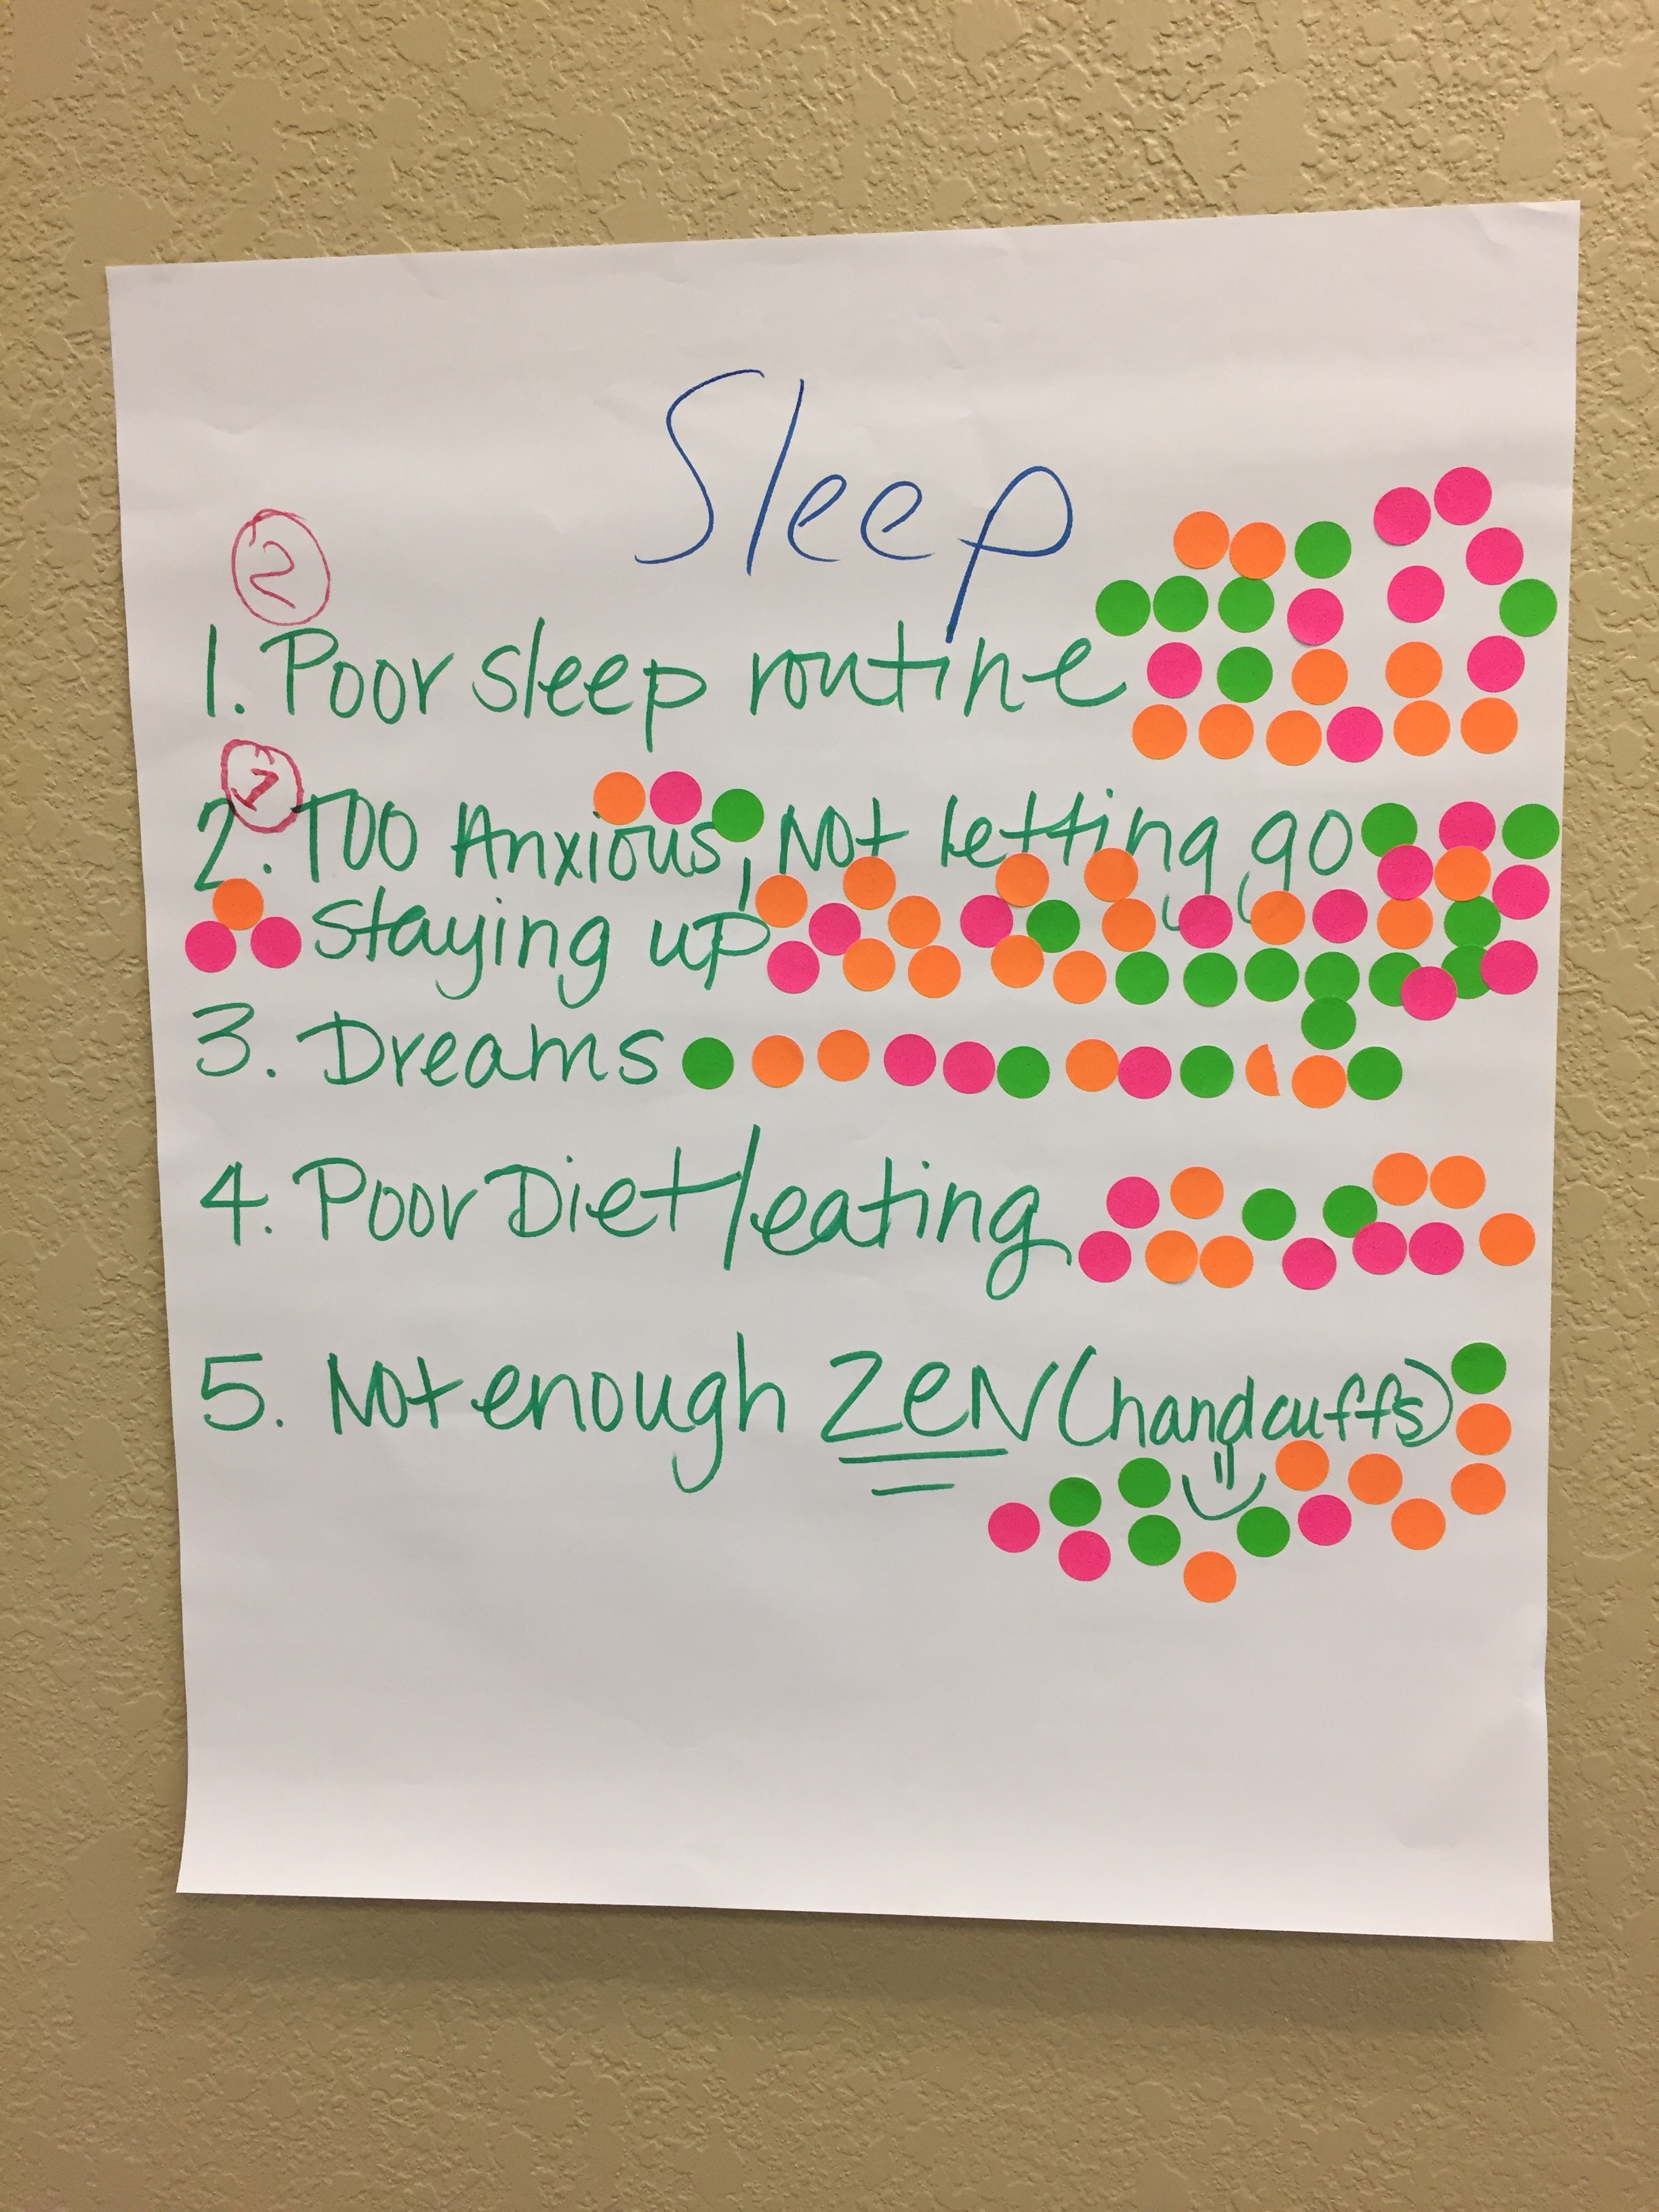 Sleep
2
1. Poor sleep routine
1
2. Too Anxious, Not letting go
staying up
3. Dreams
4. Poor Diet/eating
5. Not enough ZeN (handcuffs)